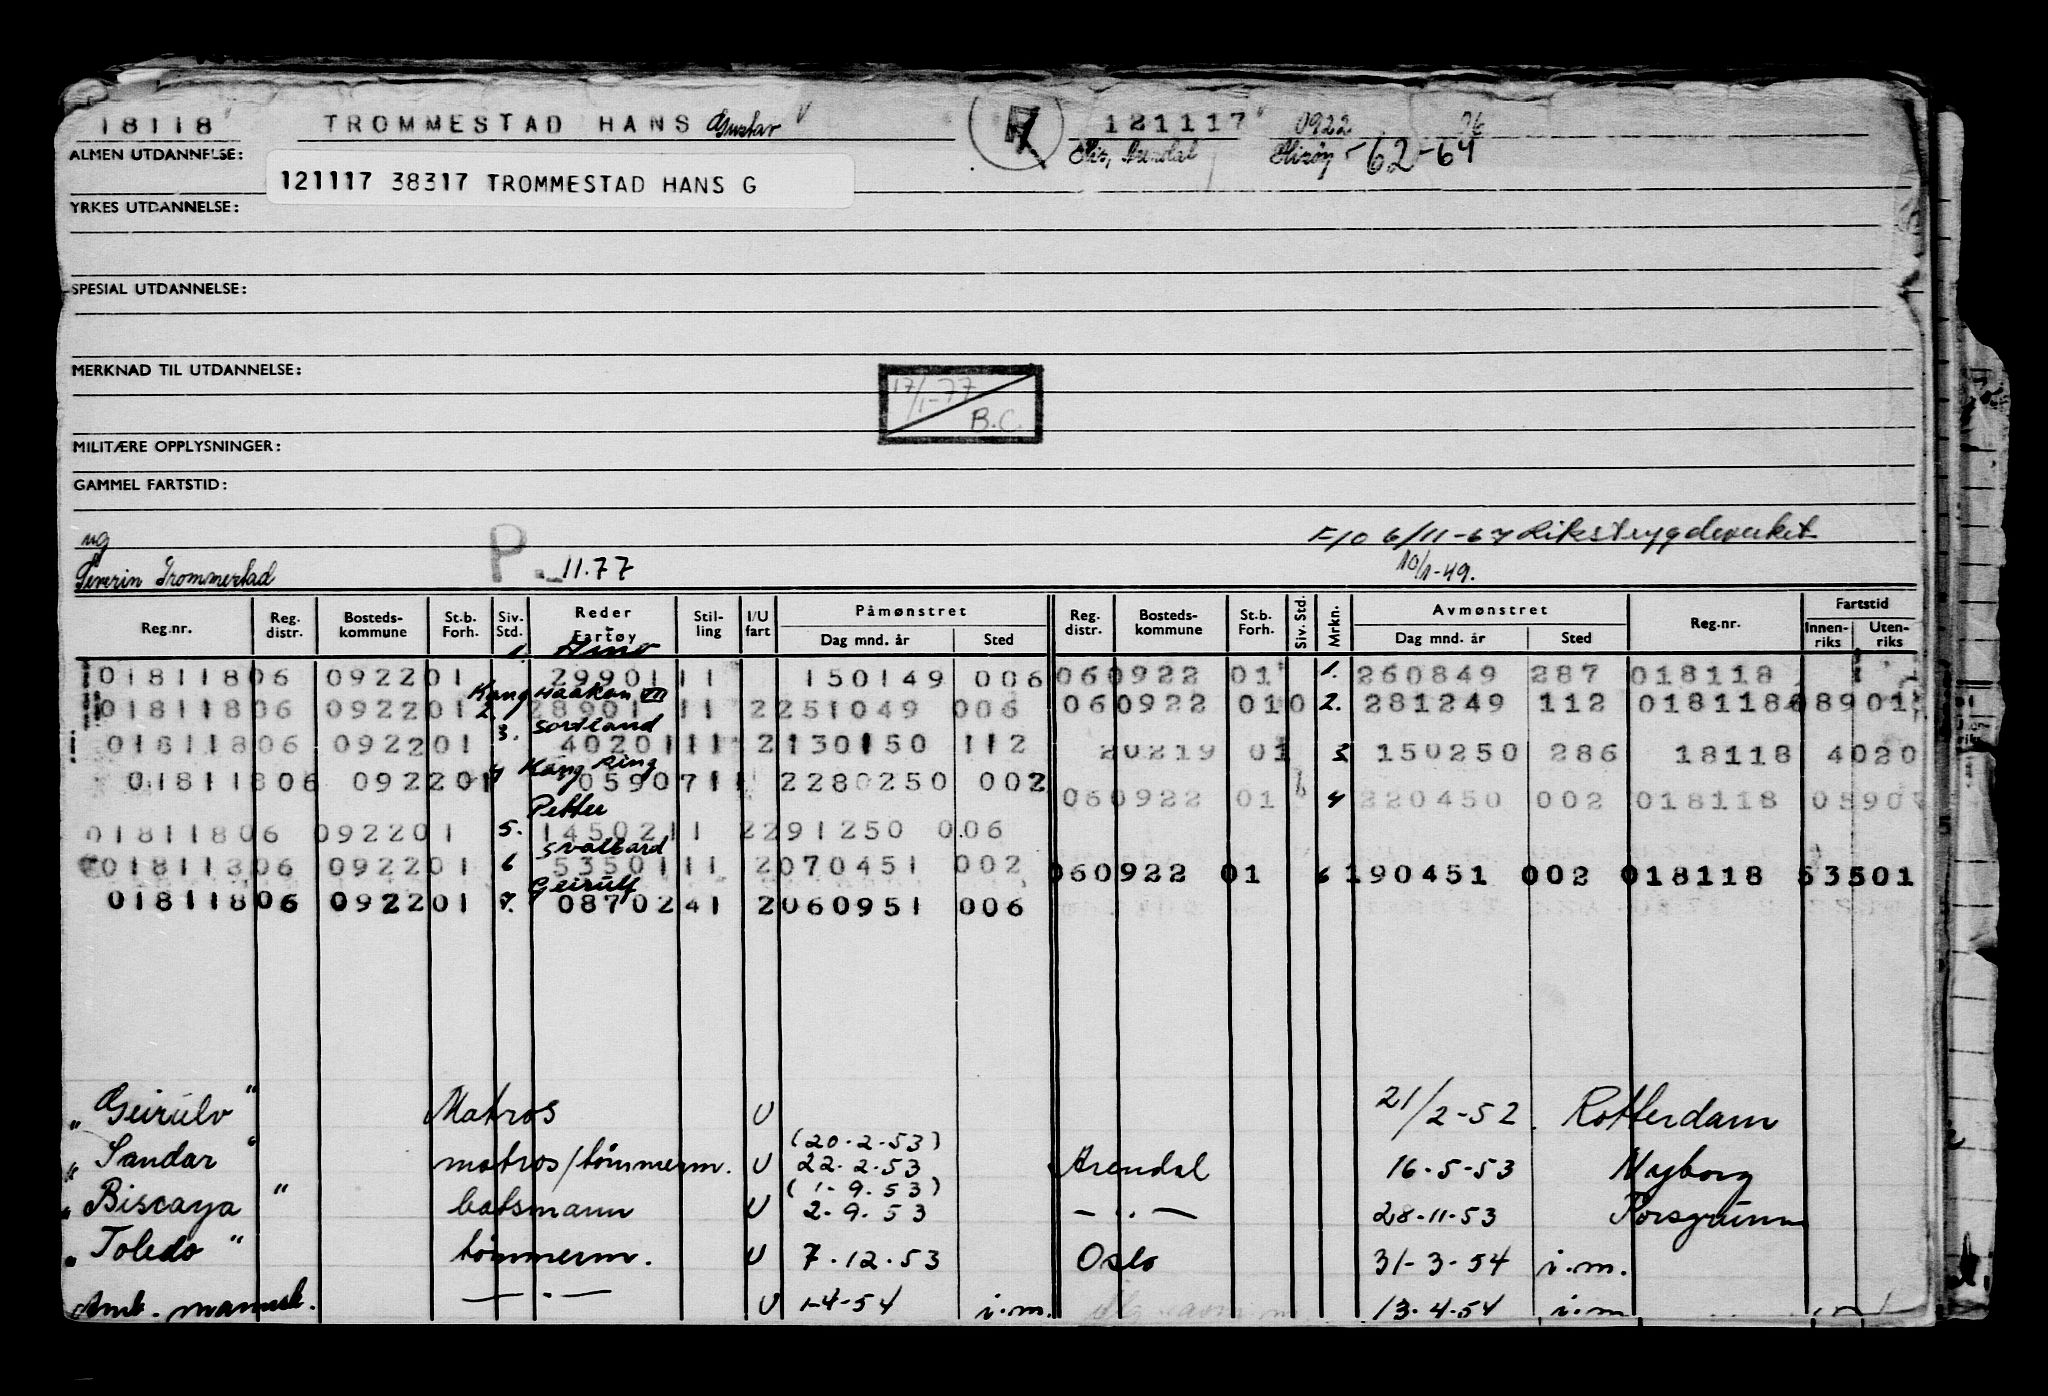 18118 TROMMESTAD HANS Gustav 121117 0922
ALMEN UTDANNELSE: His, Arendal Hisøy -62-64
121117 38317 TROMMESTAD HANS G
YRKES UTDANNELSE:
SPESIAL UTDANNELSE:
MERKNAD TIL UTDANNELSE:
17/1-77 B.C.
MILITÆRE OPPLYSNINGER:
GAMMEL FARTSTID:
ug P. 11.77 F/O 6/11-67 Rikstrygdeverket
Severin Trommestad 10/1-49.
Reg.nr. Reg. distr. Bosteds- kommune St.b. Forh. Siv. Std. Reder Fartøy Stil- ling I/U fart Påmønstret Dag mnd. år Sted Reg. distr. Bosteds- kommune St.b. Forh. Siv. Std. Mrkn. Avmønstret Dag mnd. år Sted Reg.nr. Fartstid Innen- riks Uten- riks
1.
01811806 092201 2990111 150149 006 060922 01 1. 260849 287 018118
Kong Haakon VII
01811806 092201 2. 28901 11 2251049 006 060922 010 2. 281249 112 018118 08901
Sordland
01811806 092201 3. 4020111 2130150 112 20219 01 3 150250 286 18118 4020
Kong Ring
01811806 092201 4 0590711 2280250 002 060922 01 4 220450 002 018118 0590
Petter
01811806 092201 5. 1450211 2291250 006
Svalbard
01811806 092201 6 5350111 2070451 002 060922 01 6 190451 002 018118 53501
Geirulf
01811806 092201 7. 0870241 2060951 006
" Geirulv " Matros U 21/2-52. Rotterdam
(20-2-53)
" Sandar " matros/tømmerm. U 22-2-53 Arendal 16-5-53 Nyborg
(1-9.53)
" Biscaya " båtsmann U 2-9.53 — " — 28-11-53 Porsgrunn
" Toledo " tømmerm. U 7.12.53 Oslo 31-3-54 i.m.
Amb. mannsk. — " — U 1-4-54 i.m. 13.4.54 i.m